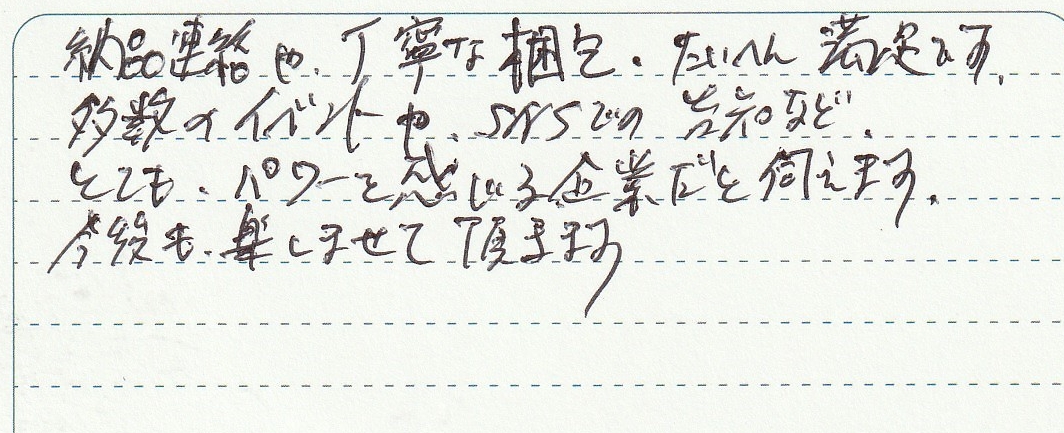 納品連絡や、丁寧な梱包。たいへん満足です。
多数のイベントや、SNSでの告知など、
とても、パワーを感じる企業だと伺えます。
今後も、楽しませて頂きます